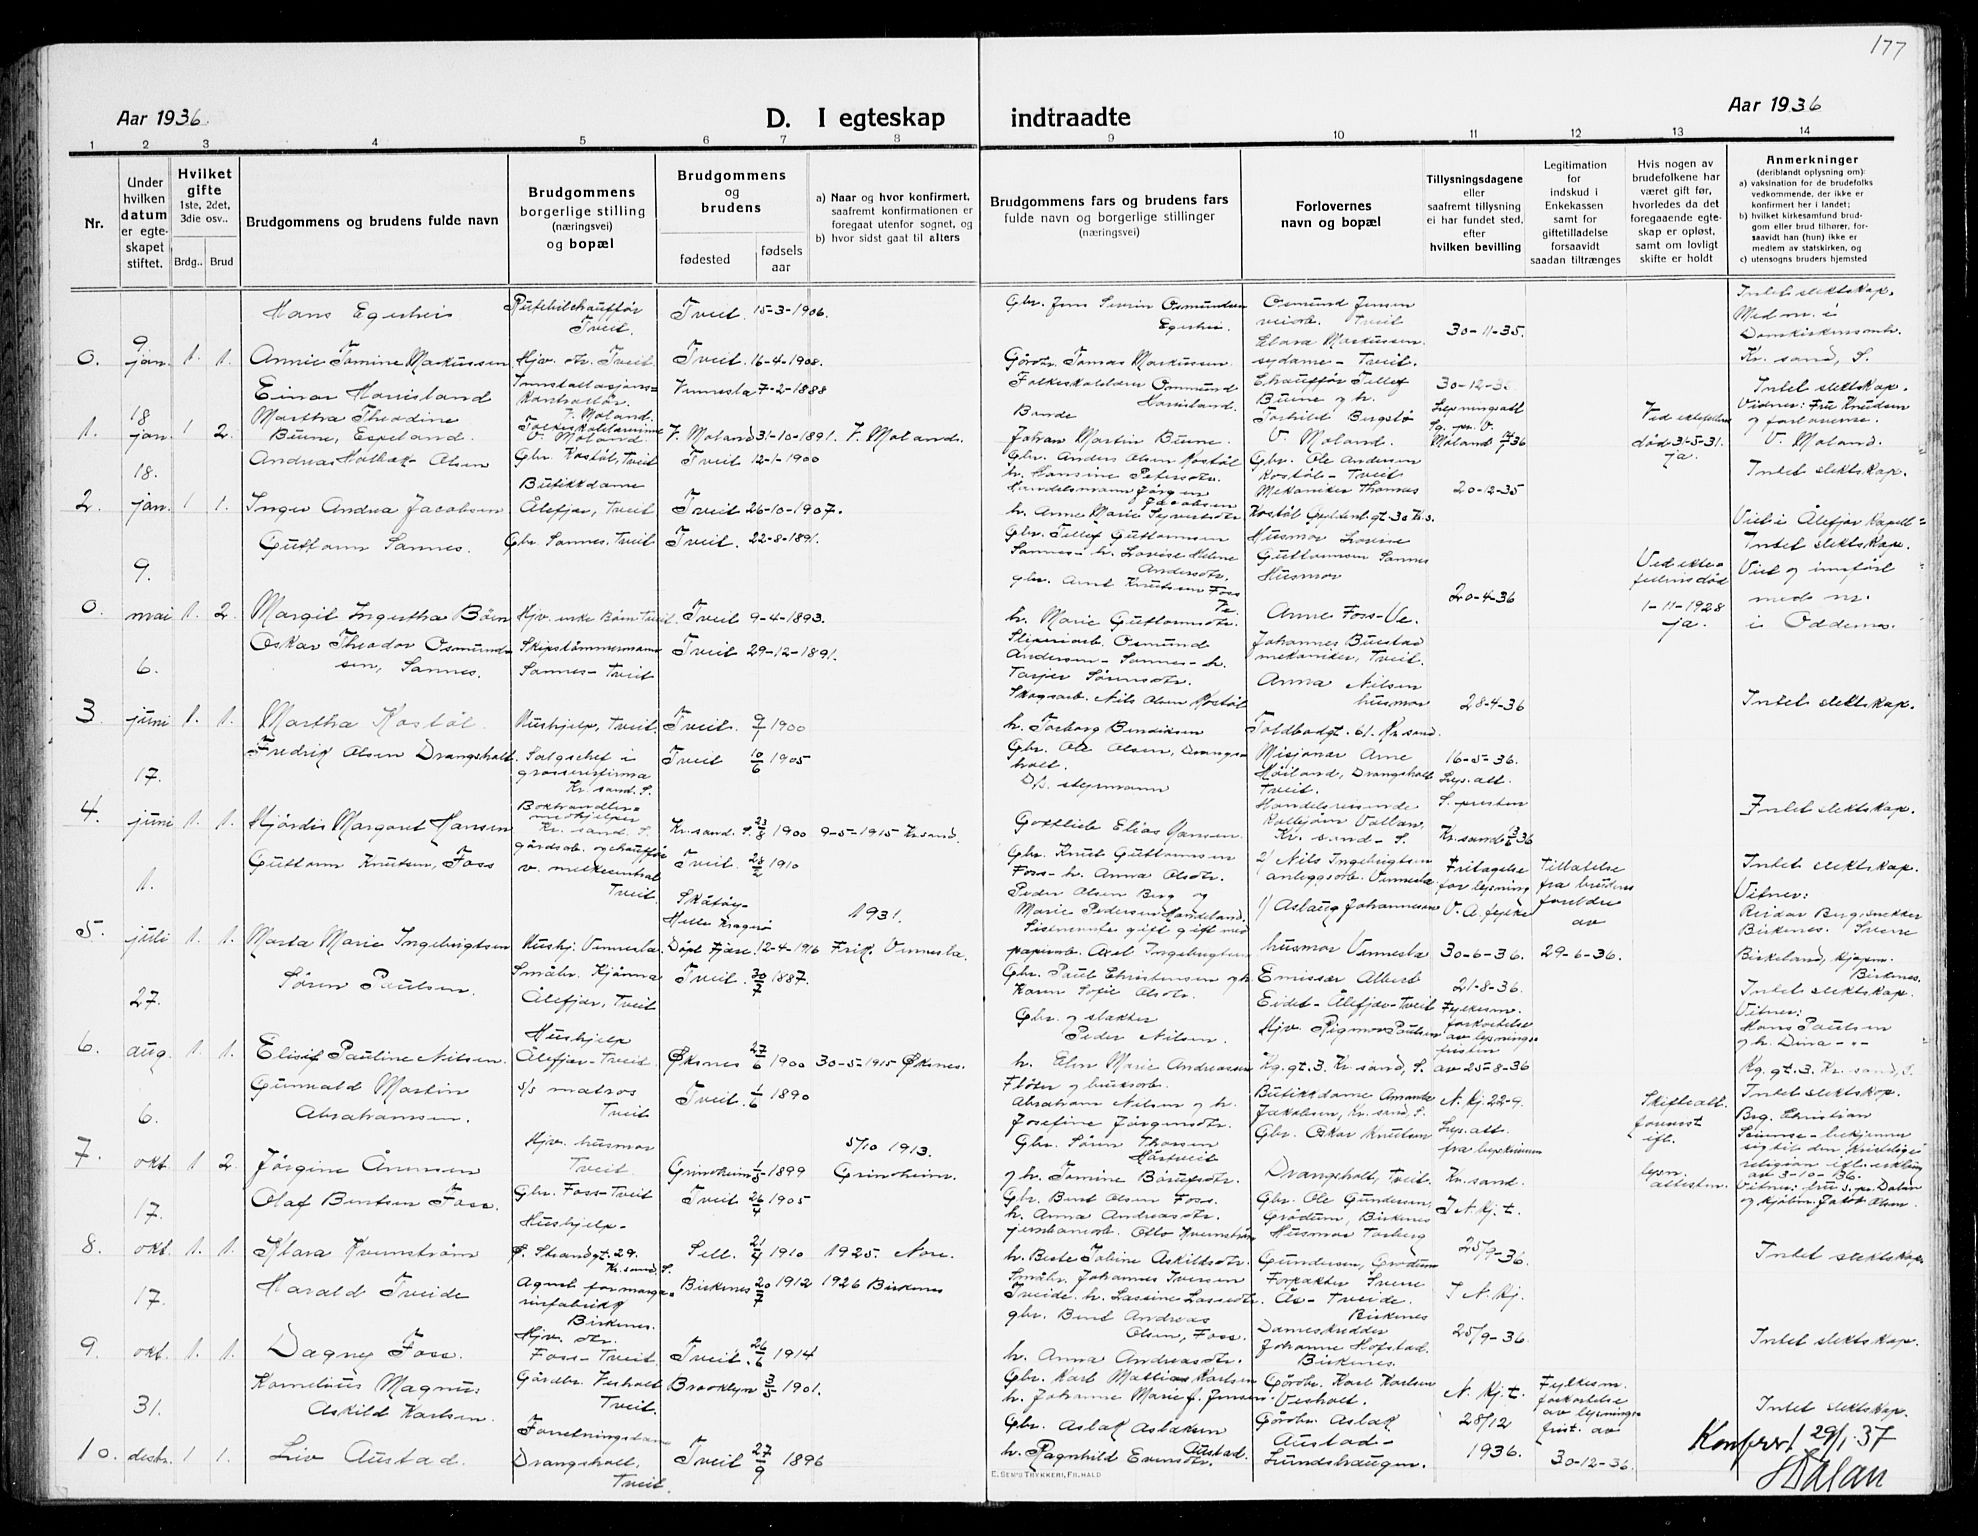 177
Aar 1936
D. I egteskap indtraadte
Aar 1936
1 2 3 4 5 6 7 8 9 10 11 12 13 14
Nr.
Under hvilken datum er egteskapet stiftet.
Hvilket gifte 1ste, 2det, 3die osv..
Brdg.. Brud
Brudgommens og brudens fulde navn
Brudgommens borgerlige stilling (næringsvei) og bopæl
Brudgommens og brudens
fødested
fødselsaar
a) Naar og hvor konfirmert, saafremt konfirmationen er foregaat utenfor sognet, og
b) hvor sidst gaat til alters
Brudgommens fars og brudens fars fulde navn og borgerlige stillinger (næringsvei)
Forlovernes navn og bopæl
Tillysningsdagene eller saafremt tillysning ei har fundet sted, efter hvilken bevilling
Legitimation for indskud i Enkekassen samt for giftetilladelse forsaavidt saadan tiltrænges
Hvis nogen av brudefolkene har været gift før, hvorledes da det foregaaende egteskap er opløst, samt om lovligt skifte er holdt
Anmerkninger (deriblandt oplysning om):
a) vaksination for de brudefolks vedkommende, der ikke er konfirmert her i landet;
b) hvilket kirkesamfund brudgom eller brud tilhører, forsaavidt han (hun) ikke er medlem av statskirken, og
c) utensogns bruders hjemsted
0. 9 jan. 1. 1.
Hans Egeshei
Rutebilchauffør Tveit.
Tveit. 15-3-1906.
Gbr. Jens Severin Osmundsen Egeshei.
Osmund Jensen veiarb. Tveit
30-11-35.
Intet slektskap.
Annie Tomine Markussen
Hjv. dtr. Tveit.
Tveit. 16-4-1908.
Gårdbr. Tomas Markussen
Klara Markussen sydame - Tveit.
Kr. sand, S.
1. 18 jan. 1 2.
Einar Honnisland
Vennesla 7-2-1888
30-12-35
Intet slektskap.
Martha Theodine Buene, Espeland.
V. Moland 31-10-1891. V. Moland.
Johan Martin Buene.
V. Moland.
død 31-5-31. ja.
V. Moland.
2. 18. jan. 1 1.
Andreas Holbæk Olsen
Gbr. Kostøl, Tveit
Tveit 12-1-1900
Gbr. Anders Olsen Kostøl h. Hansine Petersdtr.
Gbr. Ole Andersen Kostøl - Tveit
20-12-35
Intet slektskap.
Inger Andrea Jacobsen
Butikkdame Ålefjær, Tveit
Tveit 26-10-1907.
Handelsmann Jørgen Jacobsen
Mekaniker Thomas Kostøl Gyldenl.gt. 30 Kr.s.
Viet i Ålefjær kapell
0. 9. mai 1. 2
Guttorm Sannes.
Gbr. Sannes, Tveit
Tveit. 22-8-1891.
Gbr. Tellef Guttormsen Sannes - h. Lovise Helene Andersdtr.
Husmor Lovise Guttormsen Sannes
20-4-36
Intet slektskap.
Viet og innført med nr. i Oddernes.
Margit Ingertha Bøen
Hjv. enke Bøen Tveit
Tveit 9-4-1893.
gbr. Arnt Knutsen Foss h. Marie Guttormsdtr.
Husmor Anne Foss - Ve.
Ved ektefellens død 1-11-1928 ja.
3 6. juni 1. 1.
Oskar Theodor Osmundsen, Sannes.
Skipstømmermann Sannes - Tveit
Tveit 29-12-1891.
Osmund Andersen - Sannes - h. Tarjer Sørensdtr.
Johannes Buestad mekaniker, Tveit.
28-4-36
Intet slektskap.
Martha Kostøl.
Hushjelp, Tveit.
Tveit. 9/7 1900
Skogsarb. Nils Olsen Kostøl h. Torborg Bendiksen
Anna Nilsen husmor Toldbodgt. 61. Kr. sand.
4. 17. juni 1. 1.
Fredrik Olsen Drangsholt.
Salgschef i grosserisfirma Kr. sand. S.
Tveit 10/6 1905
Gbr. Ole Olsen, Drangsholt.
Misjonær Arne Høiland, Drangsholt Tveit.
16-5-36. Lysn. att. S. presten
Intet slektskap.
Hjørdis Margaret Hansen
Bokhandlermedhjelper Kr. sand. S.
Kr. sand. S. 23/8 1900 9-5-1915 Kr.sand.
D/S. styrmann Gottlieb Elias Hansen.
Handelsreisende Kr. sand - S.
Kr.sand
5. 1. juli 1. 1.
Guttorm Knutsen, Foss
gårdsarb. og chauffør v. melkecentral Tveit.
Tveit 28/2 1910
Gbr. Knut Guttormsen Foss - h. Anna Olsdtr.
2) Nils Ingebrigtsen anleggsarb. Vennesla
Fritagelse for lysning V. A. fylke 30-6-36.
Tillatelse fra brudens foreldre av 29-6-36.
Intet slektskap. Vitner: Reidar Berg, snekker Birkenes.
Marta Marie Ingebrigtsen
Hushj. Vennesla.
Skåtøy - Helle Kragerø Døpt Fjære. 12-4-1916
1931. Frik. Vennesla.
Peder Olsen Berg og Marie Pedersen Handeland. Sistnevnte gift gift med papirarb. Axel Ingebrigtsen
1) Aslaug Johannesen husmor Vennesla
Birkeland, Birkenes.
6. 27. aug. 1. 1.
Søren Paulsen.
Ålefjær, Tveit
Tveit 30/7 1887.
Gbr. Paul Christensen og h. Karen Sofie Olsdtr.
Emissær Albert Eidet - Ålefjær - Tveit
21-8-36. Fylkesm. forkortelse av lysningsfristen av 25-8-36
Intet slektskap. Vitner: Hans Paulsen og h. Dina -"-
Elisif Pauline Nilsen.
Hushjelp Ålefjær - Tveit
Øksnes 27/6 1900 30-5-1915 Øksnes.
Gbr. og slakter Peder Nilsen. h. Elen Marie Andreassen
Hjv. Rigmor Paulsen Kg. gt. 3. Kr. sand, S.
Kg. gt. 3. Kr. sand, S.
7. 6. okt. 1 2.
Gunvald Martin Abrahamsen.
s/s matros Tveit
Tveit. 1/6 1890
Fløter og bruksarb. Abraham Nilsen og h. Josefine Jørgensdtr.
Butikkdame Amanda Jakobsen, Kr. sand, S.
N. kj. 22-9. Lysn. att.
Skifteatt.
Intet slektskap.
Jørgine Ånensen
Hjv. husmor Tveit.
Grindheim 1/5 1899
5/10 1913. Grindheim.
Gbr. Søren Thorsen og h. Tomine Børufsdtr.
Gbr. Oskar Knutsen Drangsholt, Tveit.
Kr. sand.
8. 17. okt. 1. 1.
Olaf Bentsen Foss.
Gbr. Foss - Tveit
Tveit 26/4 1905
Gbr. Bent Olsen Foss. h. Anna Andreasdtr.
Gbr. Ole Gundersen, Grødum, Birkenes
I N. kj. t. 25/9-36.
Intet slektskap
Klara Kvernstrøm
Hushjelp - Ø. Strandgt. 29. Kr.sand, S.
Sell. 21/9 1910 1925. Nore.
jernbanearb. Otto Kvernstrøm h. Beate Jobine Askildsdtr.
Husmor Torborg Gundersen, Grødum
9. 17. okt. 1. 1.
Harald Tveide
Agent for margarinfabrikk Birkenes.
Birkenes 20/7 1912 1926 Birkenes
Småbr. Johannes Iversen Tveide. h. Lassine Lassedtr.
Ås - Tveide. Birkenes
I N. kj. 25/9-36.
Intet slektskap.
Dagny Foss.
Hjv. dtr. Foss - Tveit.
Tveit. 26/6 1914
gbr. Bent Andreas Olsen, Foss. h. Anna Andreasdtr.
Dameskredder Johanne Hofstad. Birkenes.
10. 31. desbr. 1 1.
Kornelius Magnus Askild Karlsen.
Gårdbr. Vesholt Tveit.
Brooklyn 3/5 1901.
Gbr. Karl Mathias Karlsen h. Johanne Marie f. Jensen
Gårdbr. Karl Karlsen Vesholt.
N. kj. t. 28/12 1936.
Fylkesm. forkortelse av lysningsfrist. av 30-12-36.
Intet slektskap.
Liv Austad.
Forretningsdame Drangsholt, Tveit.
Tveit 27/9 1896
Gbr. Aslak Aslaksen Austad. h. Ragnhild Evensdtr.
Gårdbr. Aslak Austad - Lundshaugen.
Konferert 29/1 37
S Dalan
E. SEM'S TRYKKERI, FR.HALD